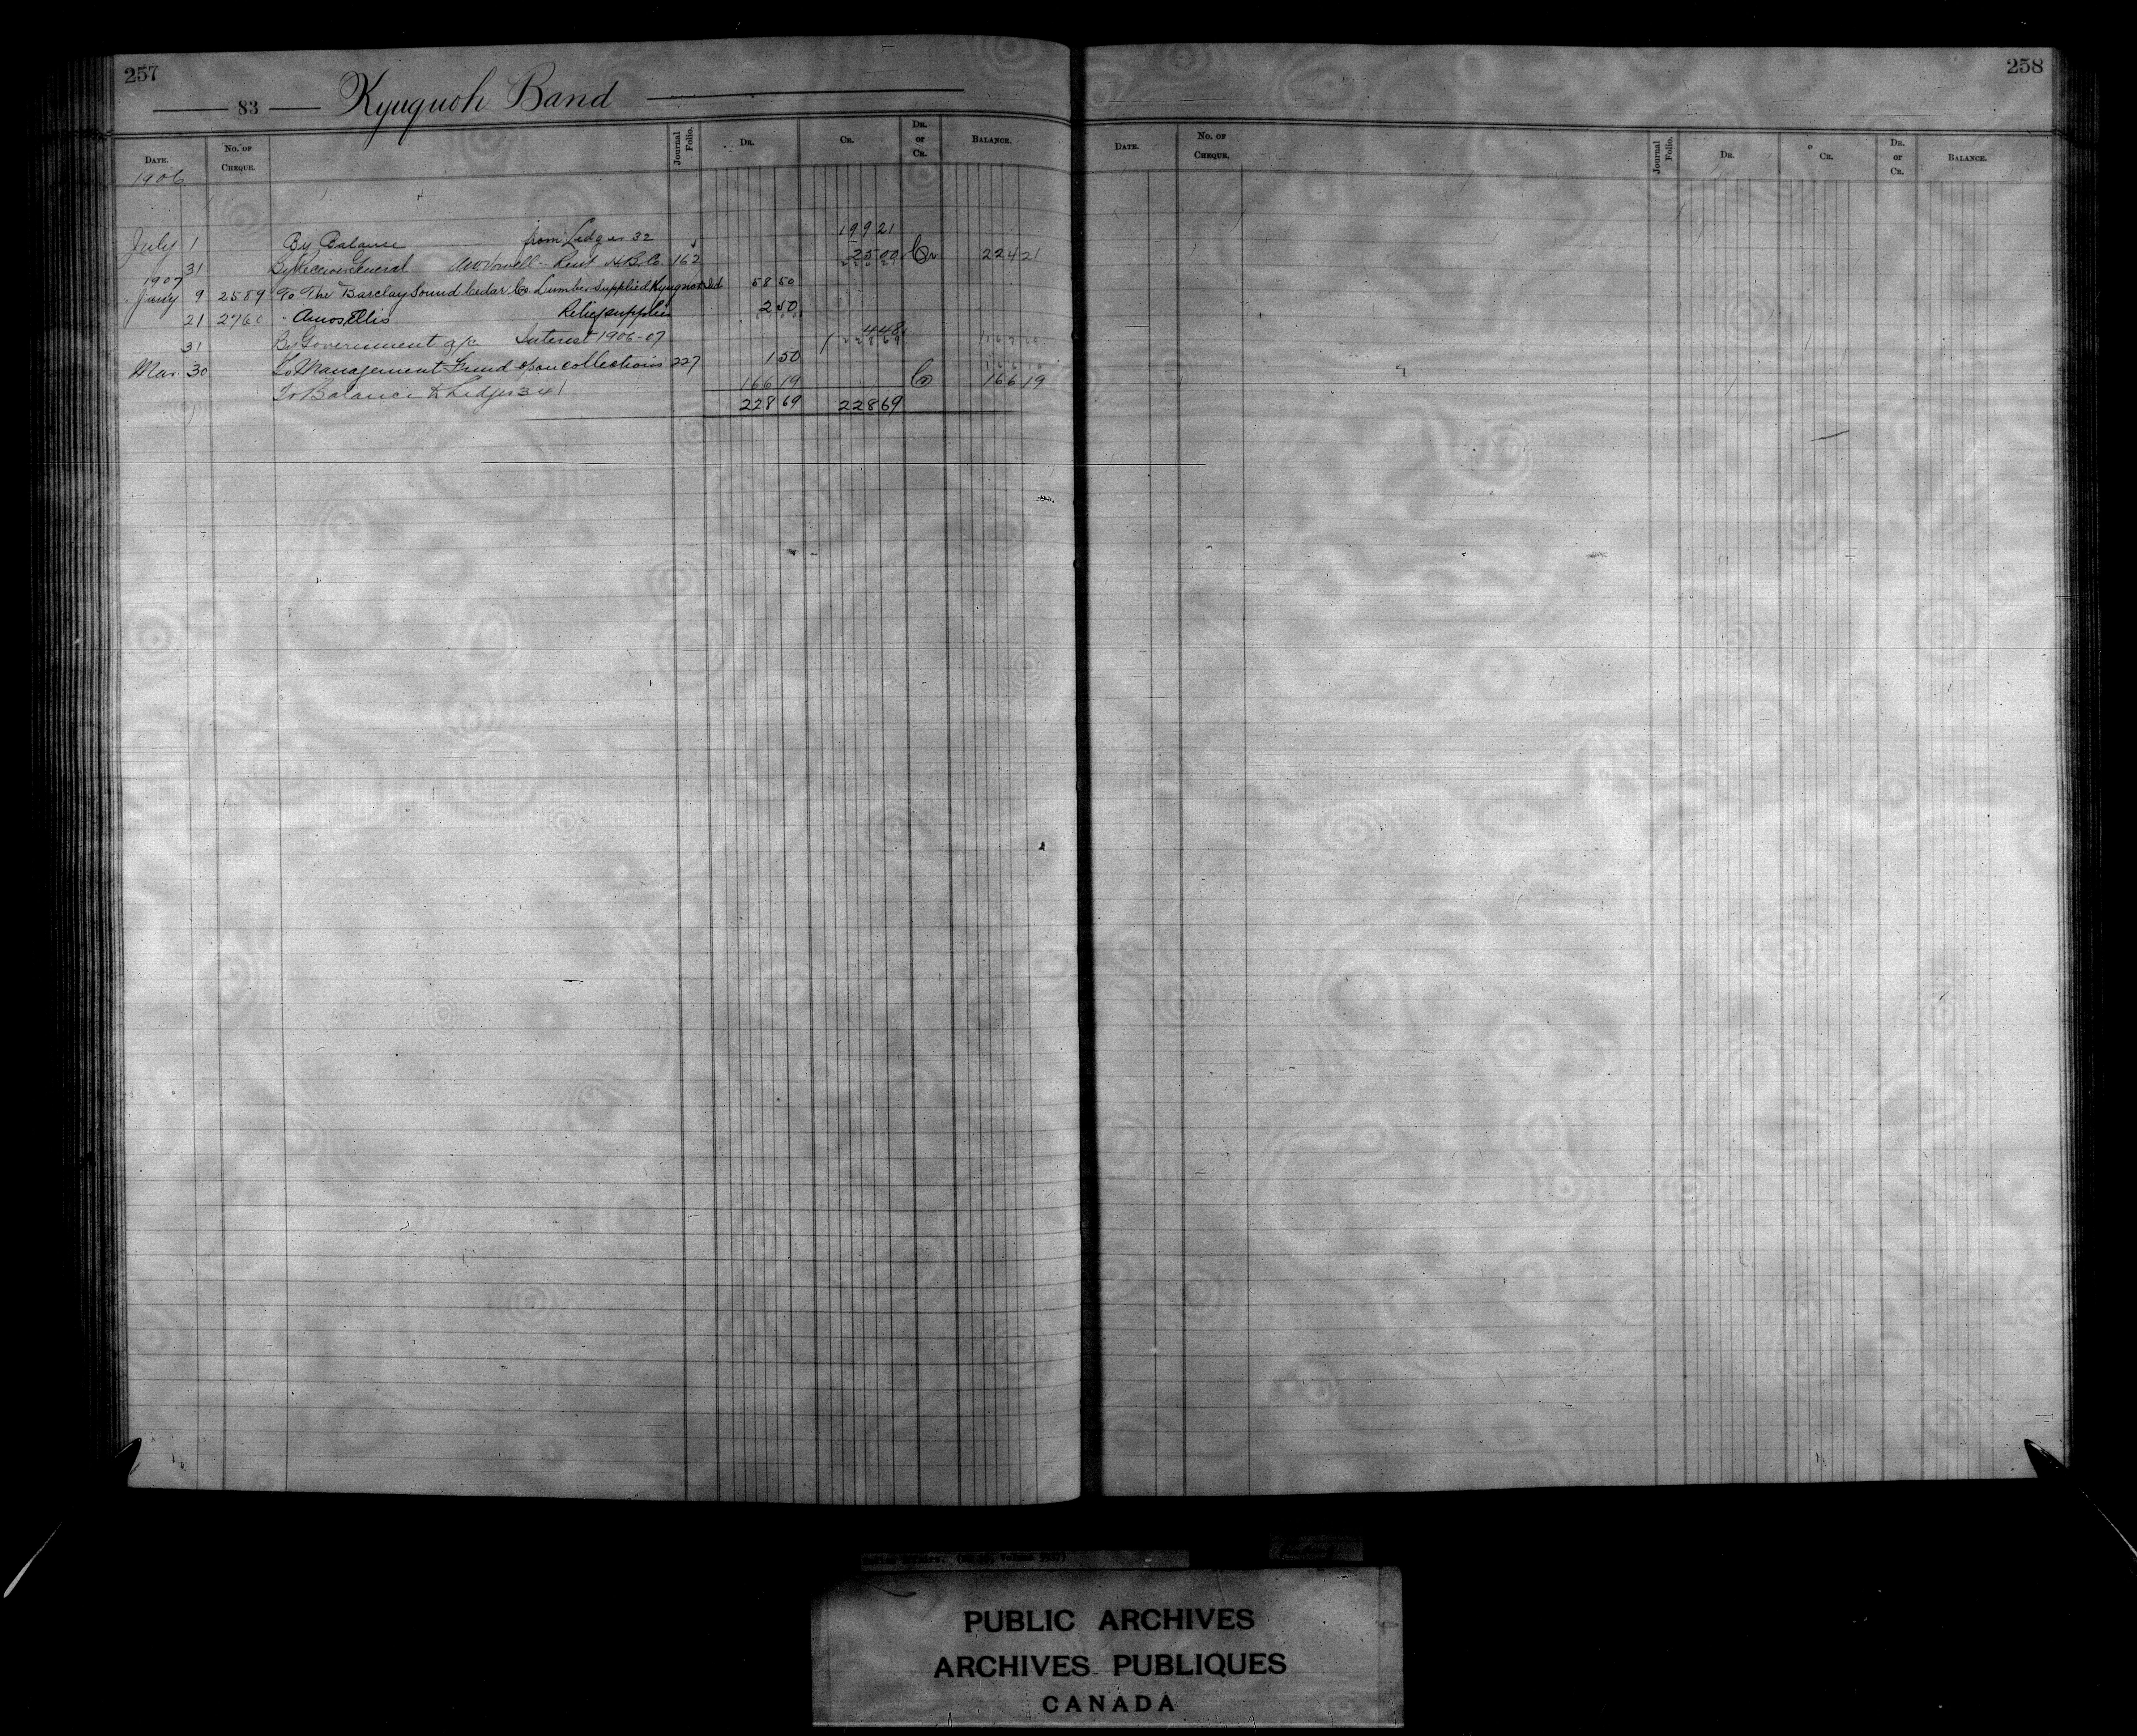 257
83 Kyuquoh Band
DATE. No. OF CHEQUE. Journal Folio. DR. CR. DR. or CR. BALANCE.
1906
July 1 By Balance from Ledger 32 199 21
31 By Receiver General Rent H.B.Co. 162 25 00 Cr 224 21
1907
Jany 9 2589 To The Barclay Sound Cedar Co. Lumber supplied 58 50
21 2760 " Amos Ellis Relief supplies 2 50
31 By Government a/c Interest 1906-07 4 48
228 69
Mar. 30 To Management Fund on collections 227 1 50
To Balance to Ledger 34 166 19 Cr 166 19
228 69 228 69
258
DATE. No. OF CHEQUE. Journal Folio. DR. CR. DR. or CR. BALANCE.
PUBLIC ARCHIVES
ARCHIVES PUBLIQUES
CANADA